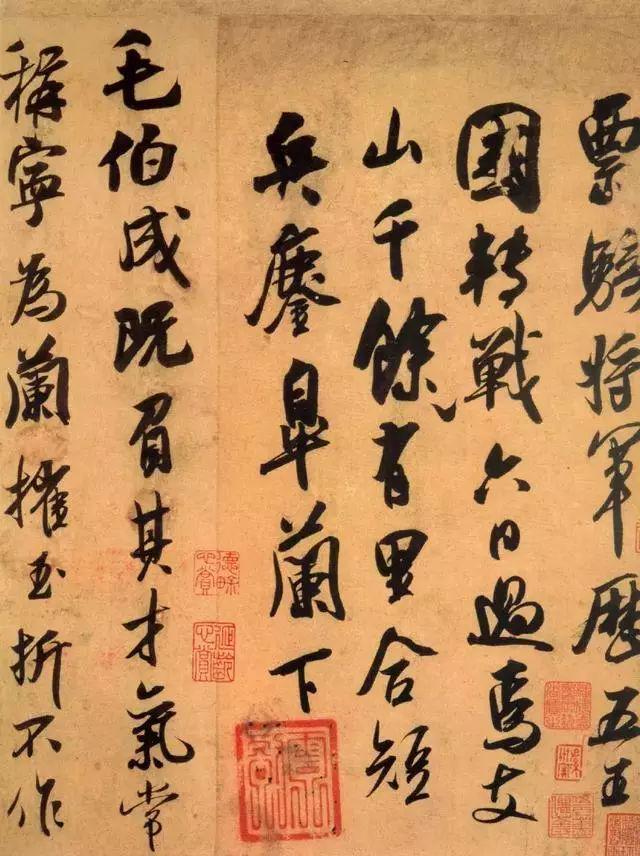 票騎将軍歷五王
國轉戰六日過焉支
山千餘有里合短
兵鏖皐蘭下
毛伯成既負其才氣常
稱寧為蘭摧玉折不作